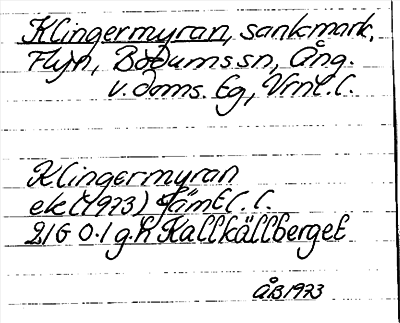 Klingermyran, sankmark,
Flyn, Bodumssn, Ång.
v. doms. Eg, Vrml. l.
Klingermyran
ek (1973) Jämtl. l.
21G 0-1 g.h Kallkällberget
ÅB 1973